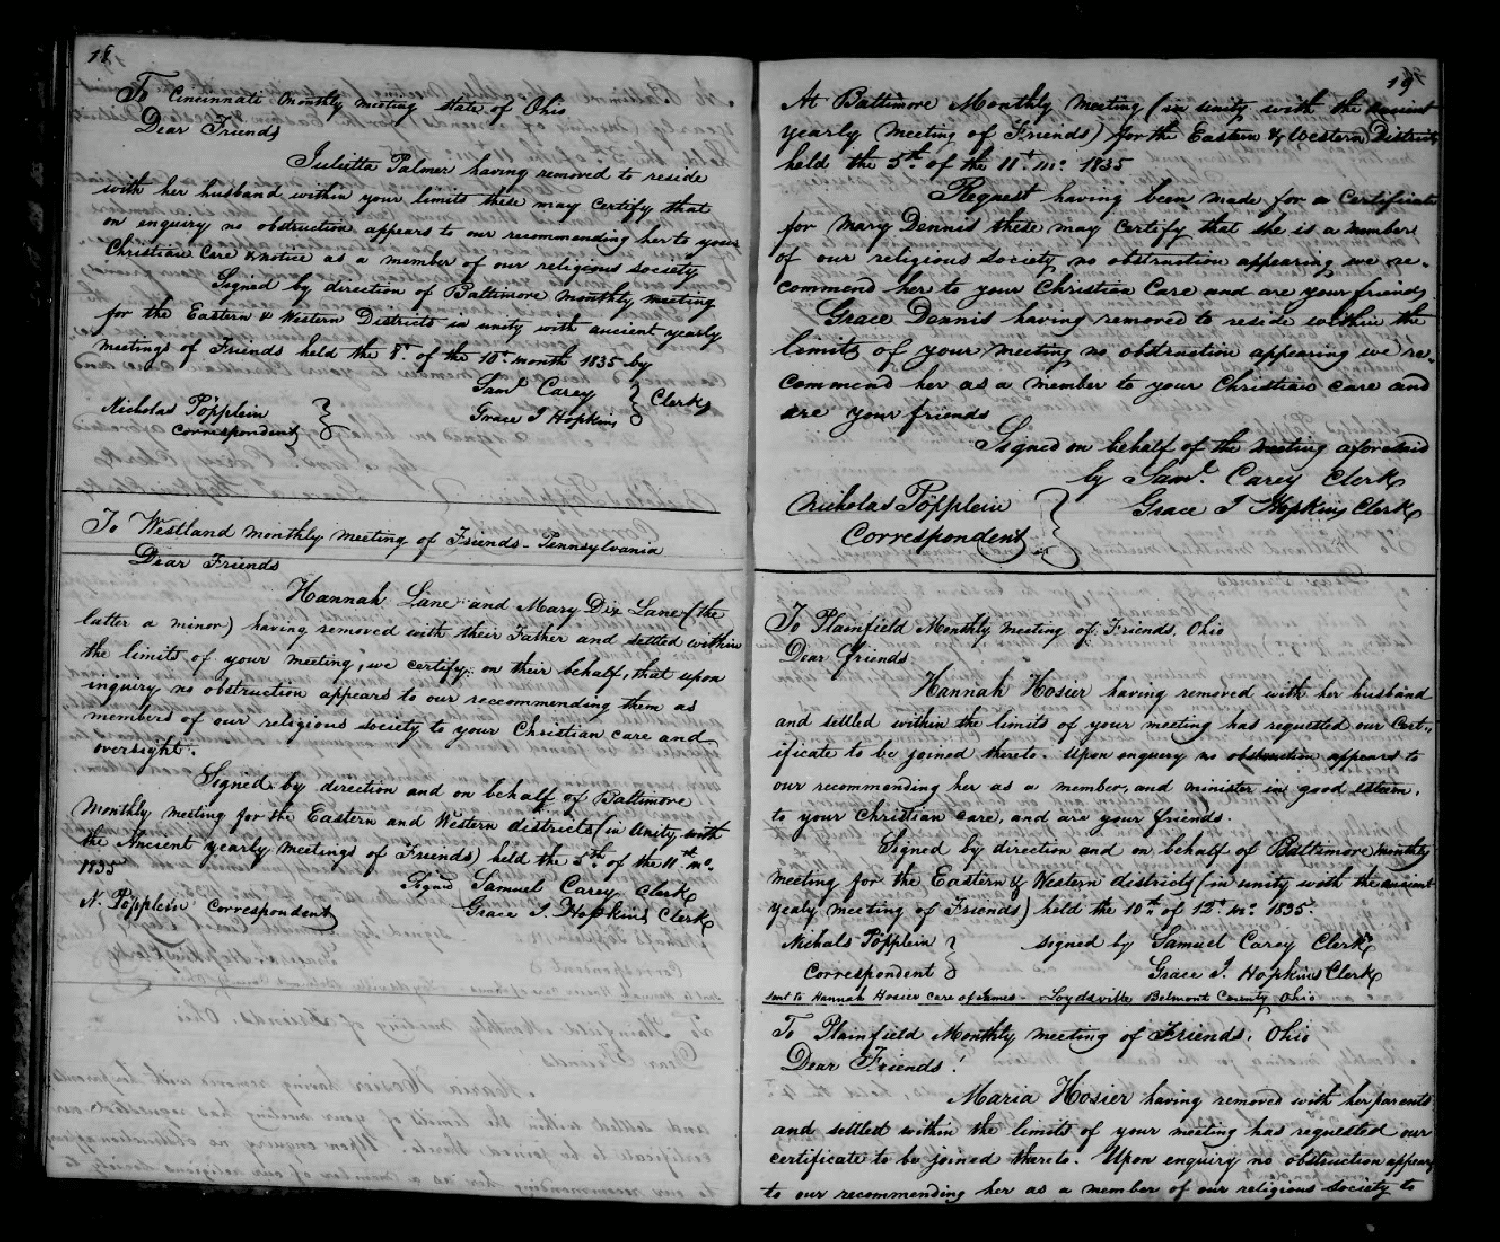 18
To Cincinnati Monthly meeting state of Ohio
Dear Friends
Julietta Palmer having removed to reside
with her husband within your limits these may certify that
on enquiry no obstruction appears to our recommending her to your
Christian Care & notice as a member of our religious society
Signed by direction of Baltimore monthly meeting
for the Eastern & Western Districts in unity with ancient yearly
meetings of Friends held the 8th. of the 10th. month 1835 by
Saml. Carey
Grace I Hopkins } Clerks
Nicholas Pöpplein
correspondent }
To Westland monthly meeting of Friends - Pennsylvania
Dear Friends
Hannah Lane and Mary Dix Lane (the
latter a minor) having removed with their Father and settled within
the limits of your meeting, we certify on their behalf, that upon
inquiry no obstruction appears to our reccommending them as
members of our religious society to your Christian care and
oversight.
Signed by direction and on behalf of Baltimore
Monthly meeting for the Eastern and Western districts (in Unity with
the Ancient yearly meetings of Friends) held the 5th of the 11th mo.
1835
Signd Samuel Carey Clerk
N. Pöpplein Correspondent
Grace I. Hopkins Clerk
19
At Baltimore Monthly Meeting (in unity with the ancient
yearly Meeting of Friends) for the Eastern & Western Districts
held the 5th. of the 11t. mo. 1835
Request having been made for a Certificate
for Mary Dennis these may certify that she is a member
of our religious society no obstruction appearing we re-
commend her to your Christian Care and are your friends
Grace Dennis having removed to reside within the
limits of your meeting no obstruction appearing we re-
commend her as a member to your Christian care and
are your friends
Signed on behalf of the Meeting aforesaid
by Saml. Carey Clerk
Nicholas Pöpplein
Grace I Hopkins Clerk
Correspondent }
To Plainfield Monthly meeting of Friends, Ohio
Dear friends
Hannah Hosier having removed with her husband
and settled within the limits of your meeting has requested our Cert-
ificate to be joined thereto. Upon enquiry no obstruction appears to
our recommending her as a member, and minister in good esteem,
to your Christian care, and are your friends.
Signed by direction and on behalf of Baltimore monthly
meeting for the Eastern & Western districts (in unity with the ancient
yealy meeting of Friends) held the 10th. of 12t. mo. 1835.
Nichals Pöpplein
Correspondent }
signed by Samuel Carey Clerk
Grace I. Hopkins Clerk
sent to Hannah Hosier care of James - Loydsville Belmont County Ohio
To Plainfield Monthly meeting of Friends, Ohio
Dear Friends!
Maria Hosier having removed with her parents
and settled within the limits of your meeting has requested our
certificate to be joined thereto. Upon enquiry no obstruction appears
to our recommending her as a member of our religious society to